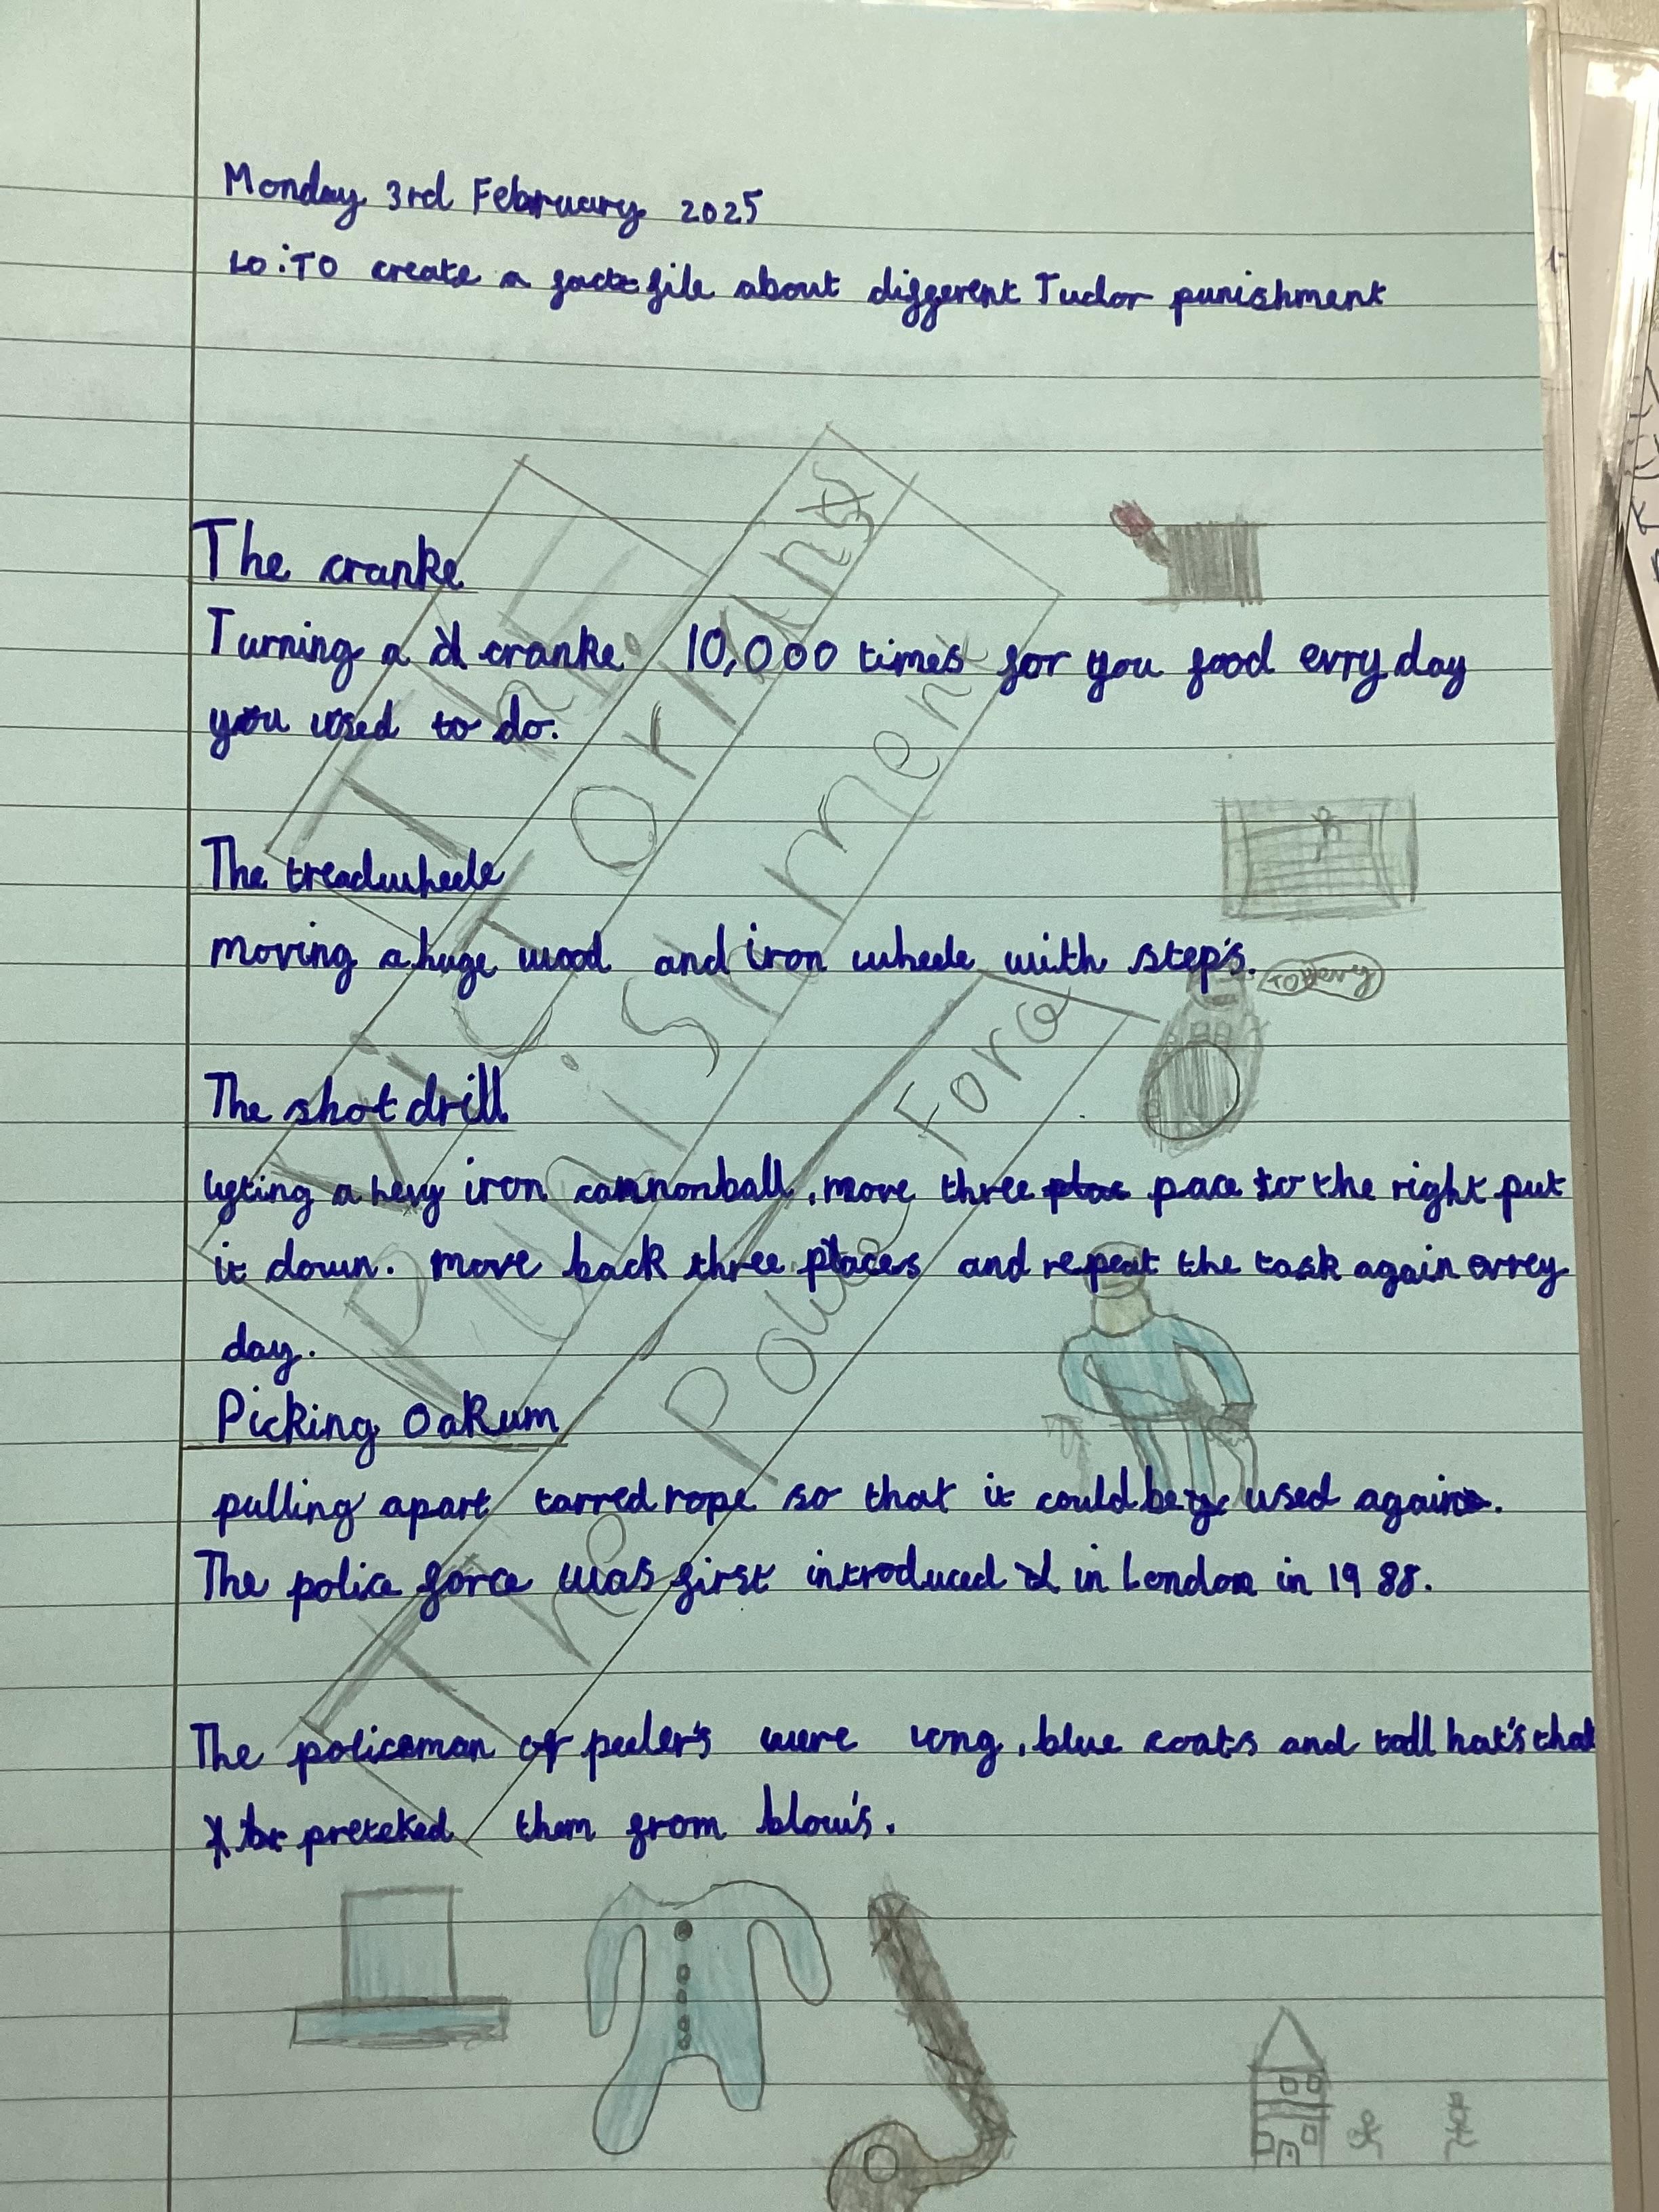 Monday 3rd February 2025
LO: TO create a fact file about different Tudor punishment
The cranke
Turning a cranke 10,000 times for you food evry day
you used to do.
The treadwheele
moving a huge wood and iron wheele with step's.
TO heavy
The shot drill
lyfting a hevy iron cannonball, move three pace to the right put
it down. move back three places and repeat the task again evrey
day.
Picking Oakum
pulling apart tarred rope so that it could be used again.
The police force was first introduced in London in 1988.
The policeman of peeler's were long, blue coats and tall hat's that
preteked them from blow's.
THE
VicTorians
Punishment
The Police Force